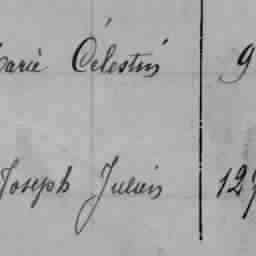 Marie Célestin 9
Joseph Julien 127